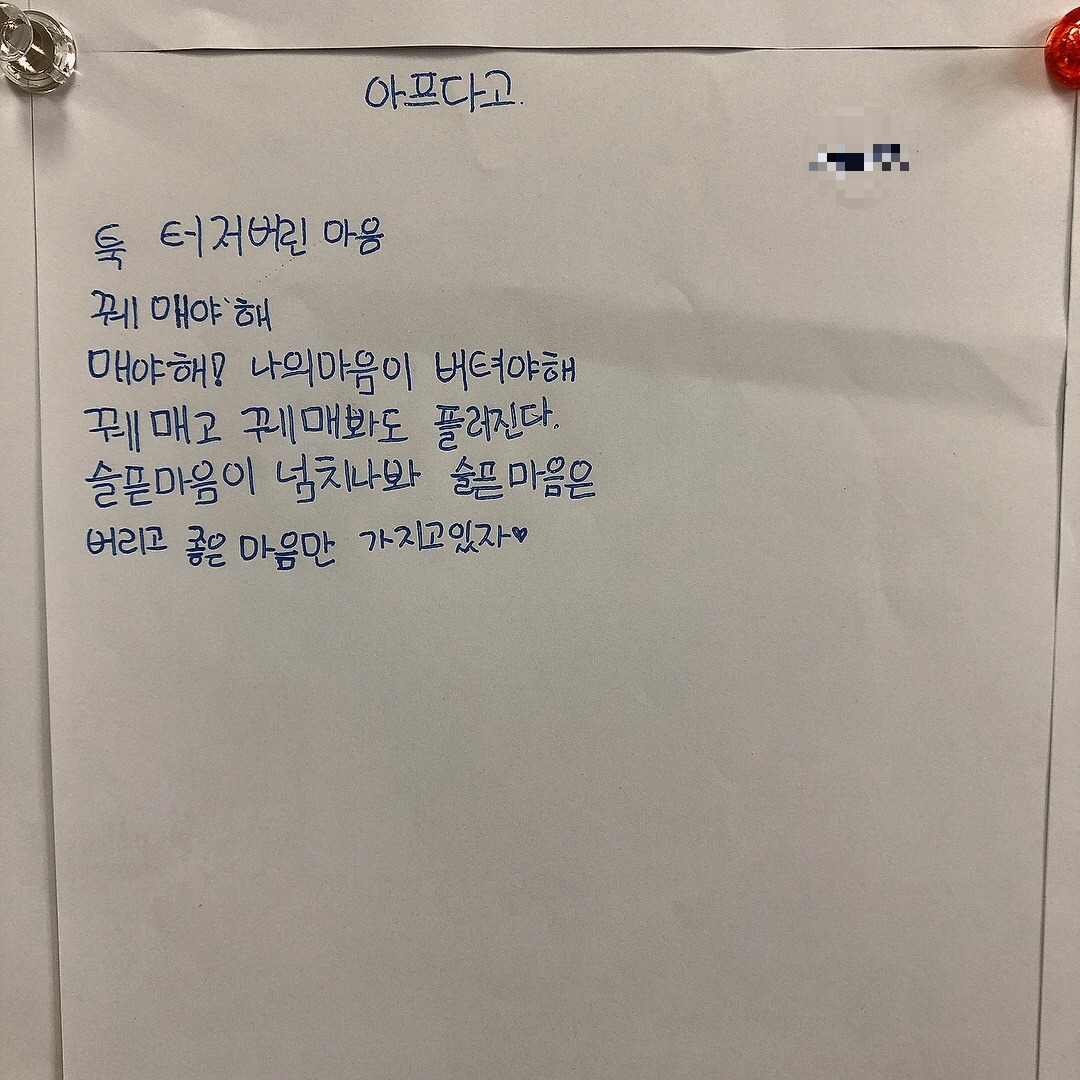 아프다고.
툭 터저버린 마음
꿰 매야 해
매야해! 나의마음이 버텨야해
꿰매고 꿰매봐도 플러진다.
슬픈마음이 넘치나봐 슬픈마음은
버리고 좋은 마음만 가지고있자♥